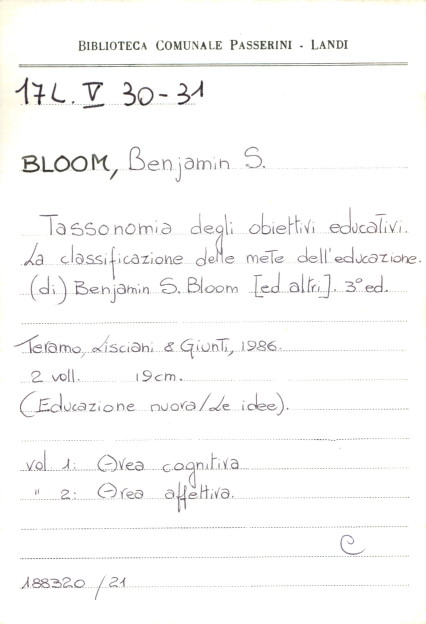 BIBLIOTECA COMUNALE PASSERINI - LANDI
17L. V 30-31
BLOOM, Benjamin S.
Tassonomia degli obiettivi educativi.
La classificazione delle mete dell'educazione.
(di) Benjamin S. Bloom [ed altri]. 3° ed.
Teramo, Lisciani & Giunti, 1986.
2 voll. 19cm.
(Educazione nuova/Le idee).
vol 1: Area cognitiva
" 2: Area affettiva.
C
188320 / 21